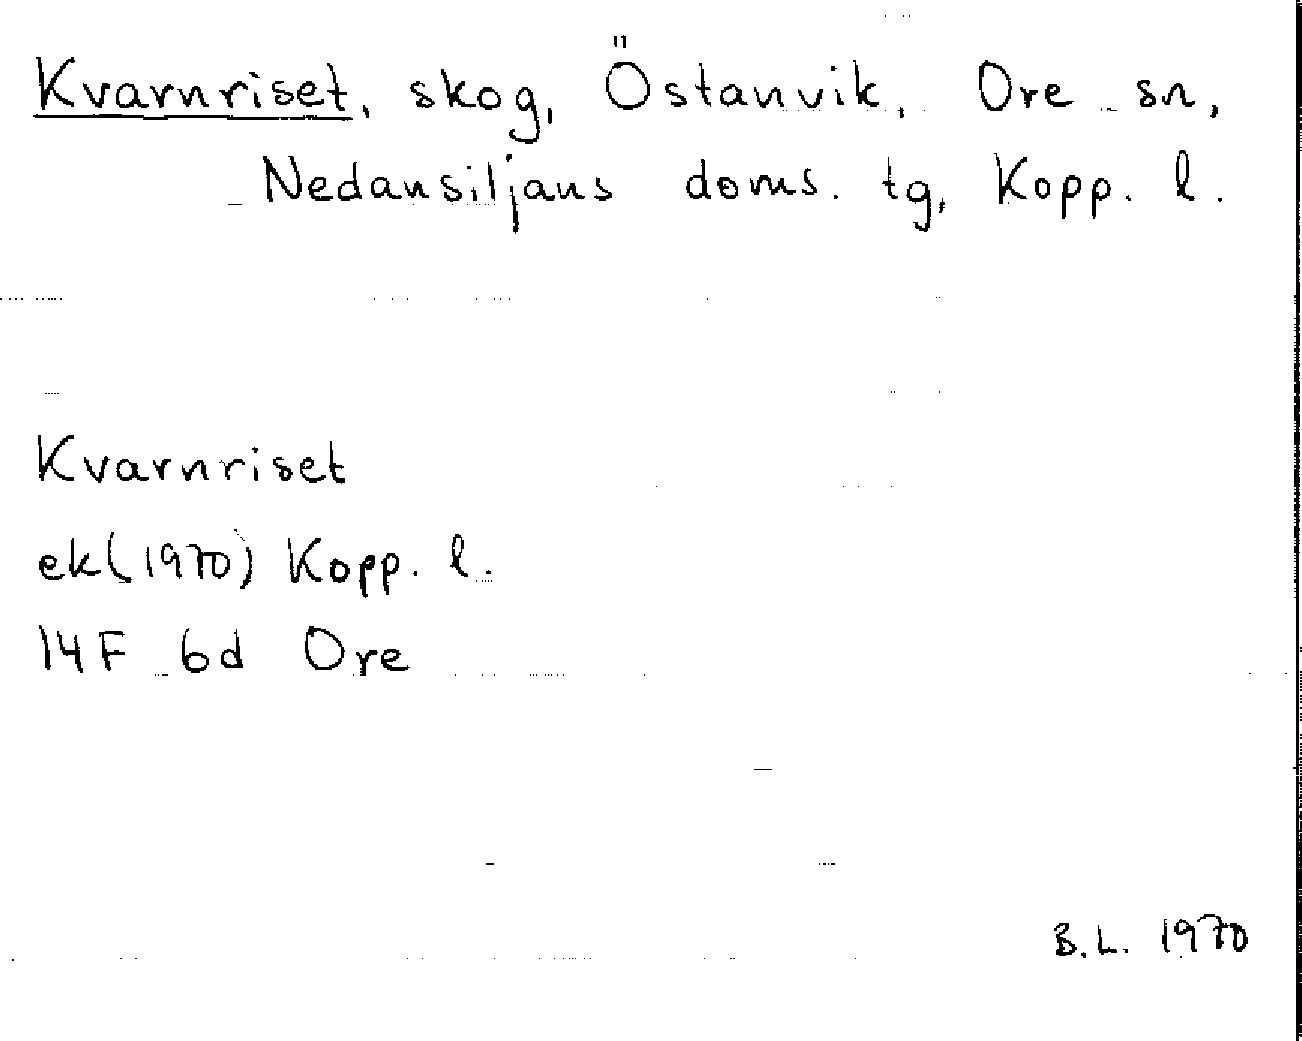 Kvarnriset, skog, Östanvik, Ore sn,
Nedansiljans doms. tg, Kopp. l.
Kvarnriset
ek(1970) Kopp. l.
14F 6d Ore
B.L. 1970